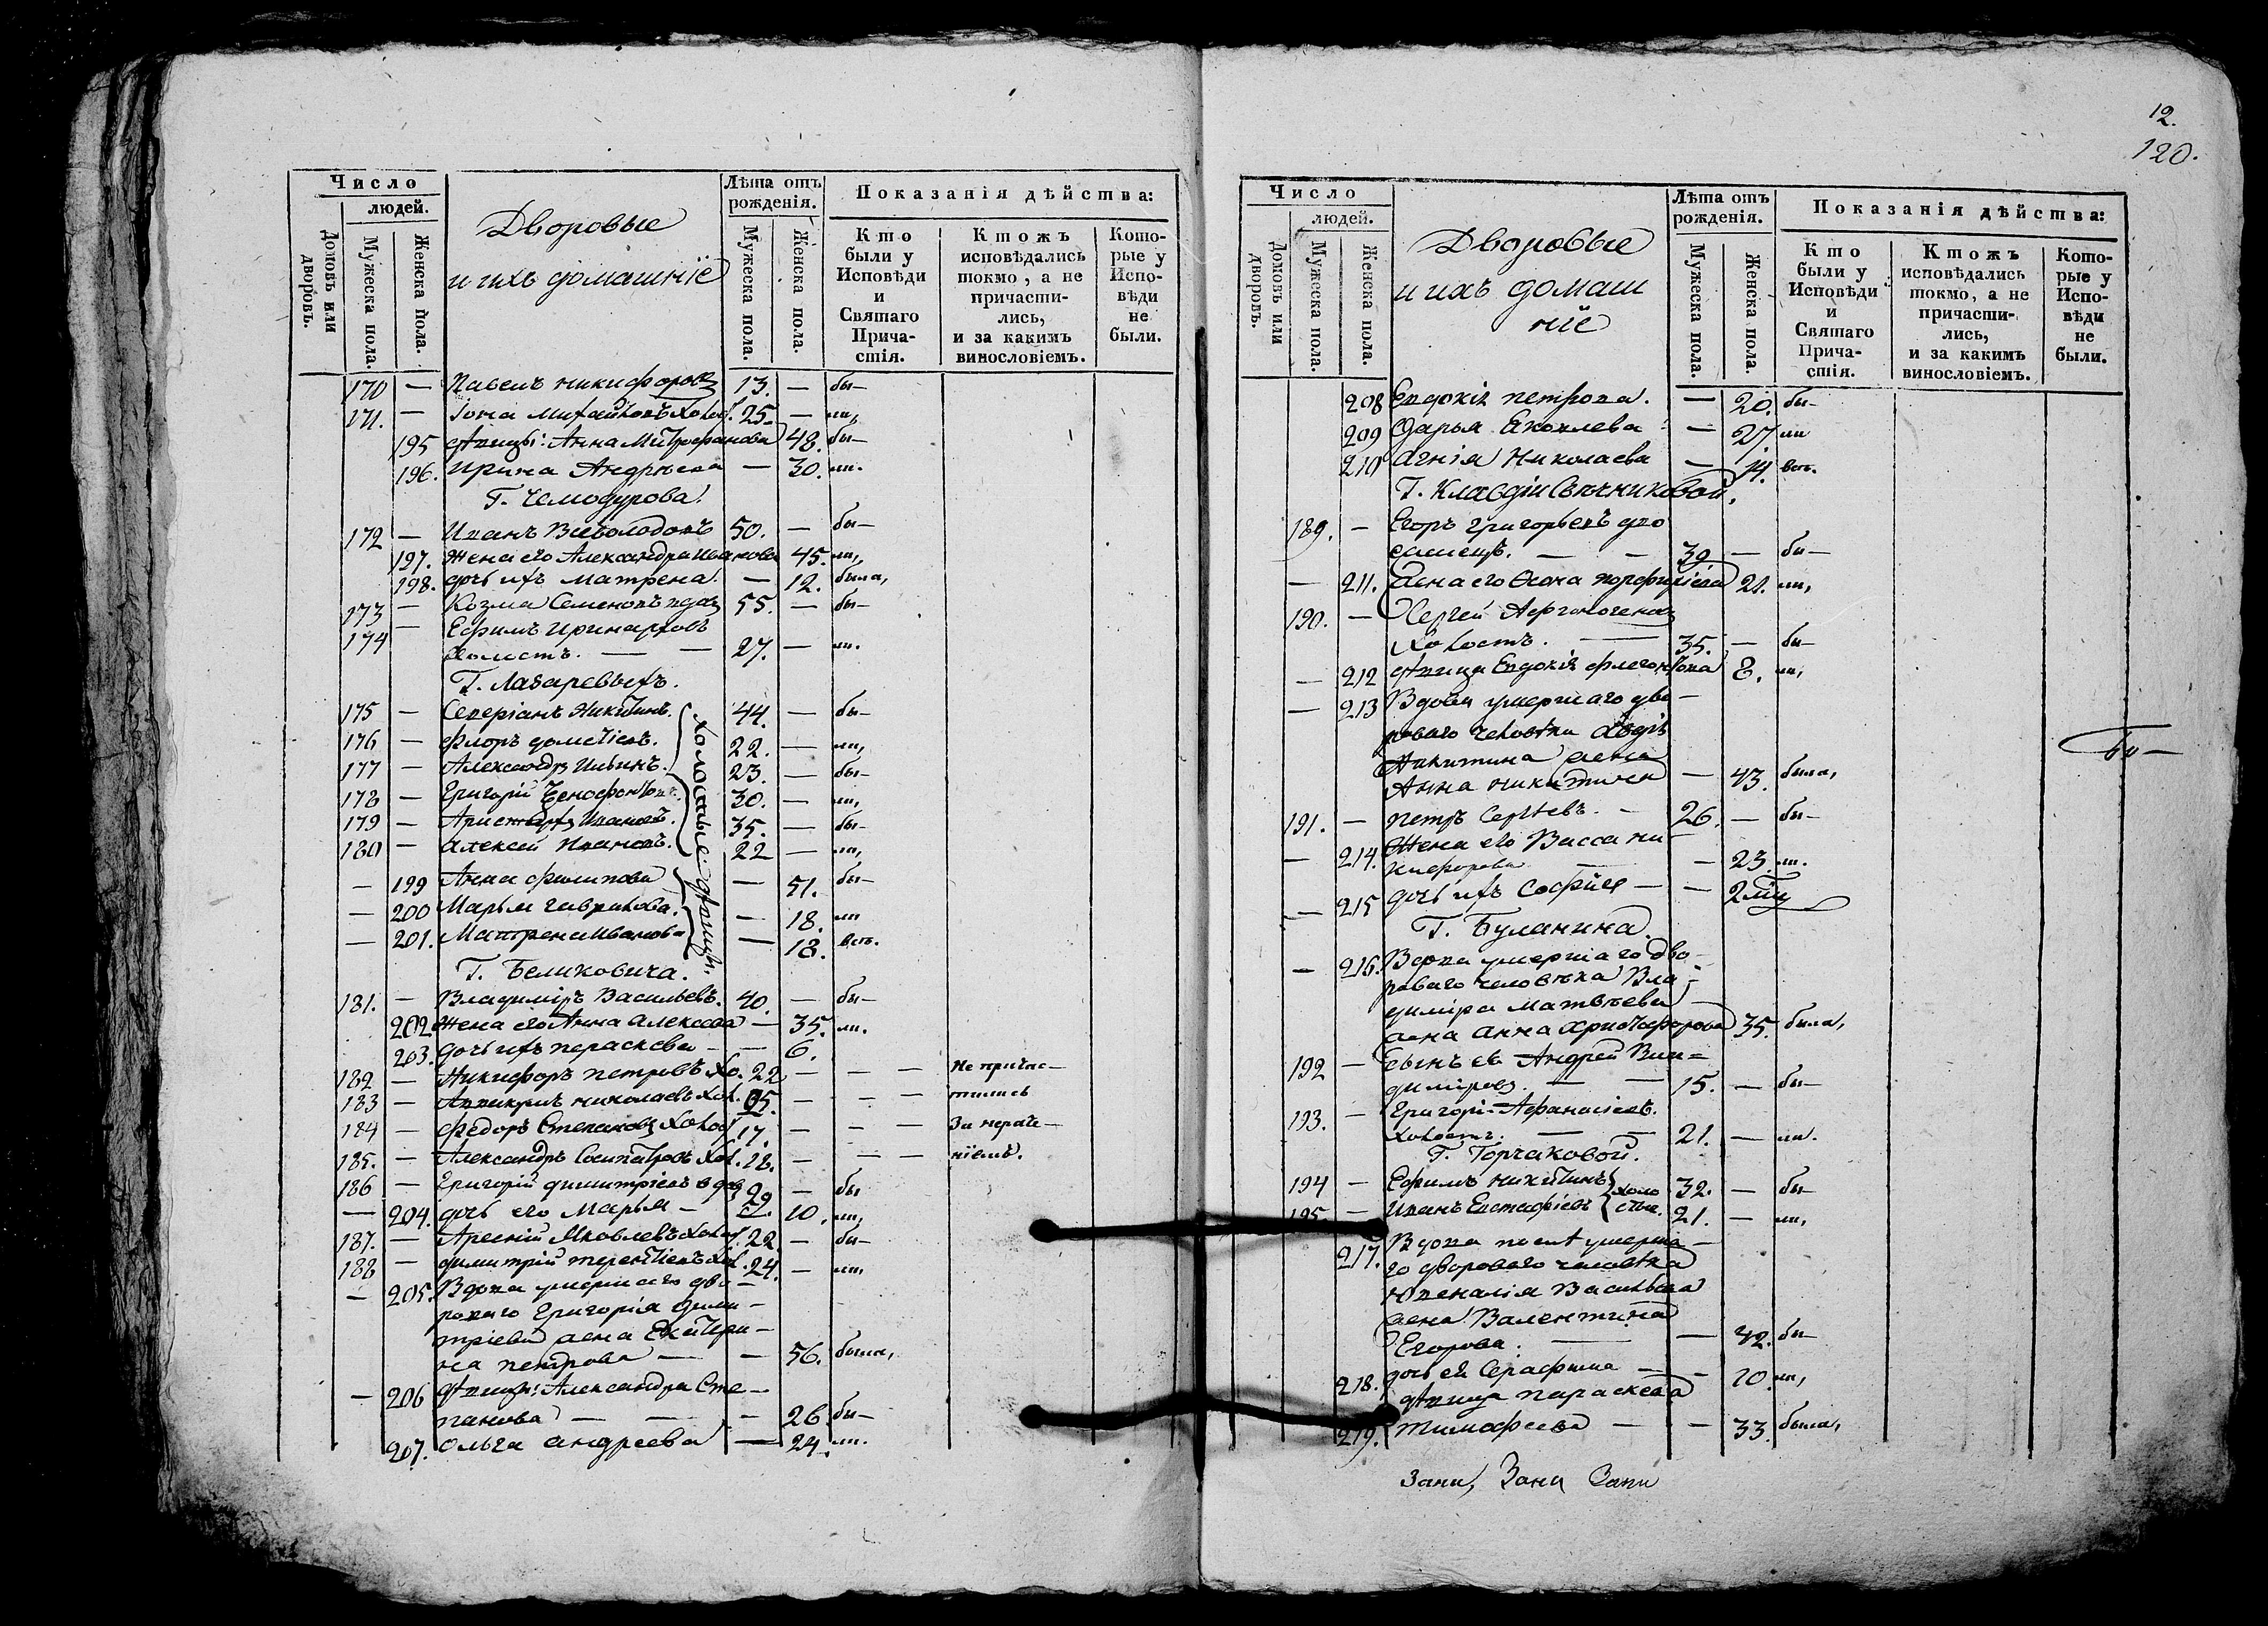 Число
людей.
Домовъ или дворовъ.
Мужеска пола.
Женска пола.
Дворовые
и ихъ домашніе
Лѣта отъ
рожденія.
Мужеска пола.
Женска пола.
Показанія дѣйства:
Кто
были у
Исповѣди
и
Святаго
Прича-
стія.
Ктожъ
исповѣдались
токмо, а не
причасти-
лись,
и за какимъ
винословіемъ.
Кото-
рые у
Испо-
вѣди
не
были.
170 — Павелъ Никифоровъ 13. — бы—
171. — Іона Михайловъ Холос. 25. — ли,
195 дѣвицы: Анна Митрофанова 48. бы—
196. Ирина Андрѣева — 30. ли.
Г. Чемодурова.
172 — Иванъ Всеволодовъ 50. — бы—
197. жена его Александра Иванова 45. ли,
198. дочь ихъ Матрена. — 12. была,
173 — Козма Семеновъ вдов 55. — бы—
174 — Ефимъ Иринарховъ
Холостъ. — — 27. — ли.
Г. Лазаревыхъ.
175 — Северіанъ Никитинъ. 44. — бы—
176 — Флоръ Дометіевъ. 22. — ли,
177 — Александръ Ильинъ. 23. — бы—
178 — Григорій Ксенофонтовъ. 30. — ли,
179 — Аристархъ Ивановъ. 35. — бы—
180 — Алексей Ивановъ. 22 — ли,
холостые
— 199 Анна Филипова — 51. бы—
— 200 Марья Гаврилова. — 18. ли
— 201. Матрена Иванова — 18. всѣ.
дѣвицы.
Г. Беликовича.
181. — Владиміръ Васильевъ. 40. — бы—
202 жена его Анна Алексѣева — 35. ли.
203. дочь ихъ Параскева — — 6.
182 — Никифоръ Петровъ хо. 22 — — — Не причас—
183 — Аввакумъ Николаевъ Хол. 25. — — — тились
184 — Федоръ Степановъ Холос 17. — — — За нераче—
185. — Александръ Сосипатровъ Хол. 28. — — — ніемъ.
186 — Григорій Димитріевъ вдов 29 — бы
— 204. дочь его Марья — — 10. ли,
187. — Арсеній Яковлевъ холос. 22. — бы—
188 — Димитрій Терентіевъ Хол. 24. — ли,
— 205. Вдова умершаго дво—
роваго Григорія Дими—
тріева жена Екатери—
на Петрова — — 56. была,
— 206 дѣвицы: Александра Сте—
панова — — — 26. бы—
207. Ольга Андреева — 24. ли.
12.
120.
Число
людей.
Домовъ или дворовъ.
Мужеска пола.
Женска пола.
Дворовые
и ихъ домаш
ніе
Лѣта отъ
рожденія.
Мужеска пола.
Женска пола.
Показанія дѣйства:
Кто
были у
Исповѣди
и
Святаго
Прича-
стія.
Ктожъ
исповѣдались
токмо, а не
причасти-
лись,
и за какимъ
винословіемъ.
Кото-
рые у
Испо-
вѣди
не
были.
208 Евдокія Петрова. — 20. бы—
209 Дарья Яковлева — 27 ли
210 Агнія Николаева — 14. всѣ.
Г. Клавдіи Свѣчниковой,
189. — Егоръ Григорьевъ
39 — бы—
— 211. Жена его Ѳеона Порфиріева 21. ли,
190. — Сергей Афиногенов
Холостъ. — 35. — бы—
— 212 дѣвица Евдокія Флегонтова 8. ли,
— 213 Вдова умершаго дво—
роваго человѣка
Никитина жена
Анна Никитина — 43. была,
191. — Петръ Сергѣевъ. — 26. — бы—
— 214. Жена его Васса Ни—
кифорова — — 23. ли.
— 215 дочь ихъ Софія — — 2
Г. Буланина.
— 216. Вдова умершаго дво—
роваго человѣка Вла—
диміра Матвѣева —
жена Анна Христофорова 35. была,
192 — Сынъ ея Андрей Вла=
диміровъ. — — 15. — бы—
193. — Григорій Афанасіевъ.
Холостъ. — — 21. — ли.
Г. Горчаковой.
194 — Ефимъ Никитинъ 32. — бы—
195 — Иванъ Евстафіевъ холостые. 21. — ли,
217. Вдова послѣ умерша—
го двороваго человѣка
Ювеналія Васильева
жена Валентина
Егорова. — — 42. бы—
218. дочь ея Серафима — — 10 ли,
дѣвица Параскева
219. Тимофеева — — 33. была,